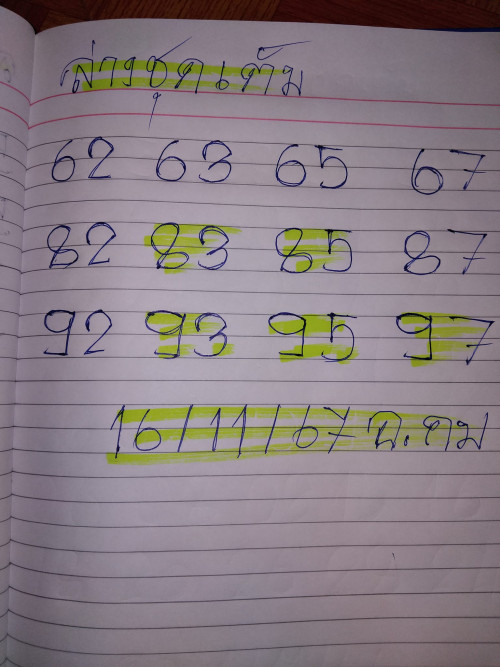 ล่างชุดเต้ม
62 63 65 67
82 83 85 87
92 93 95 97
16/11/67 อ.คม